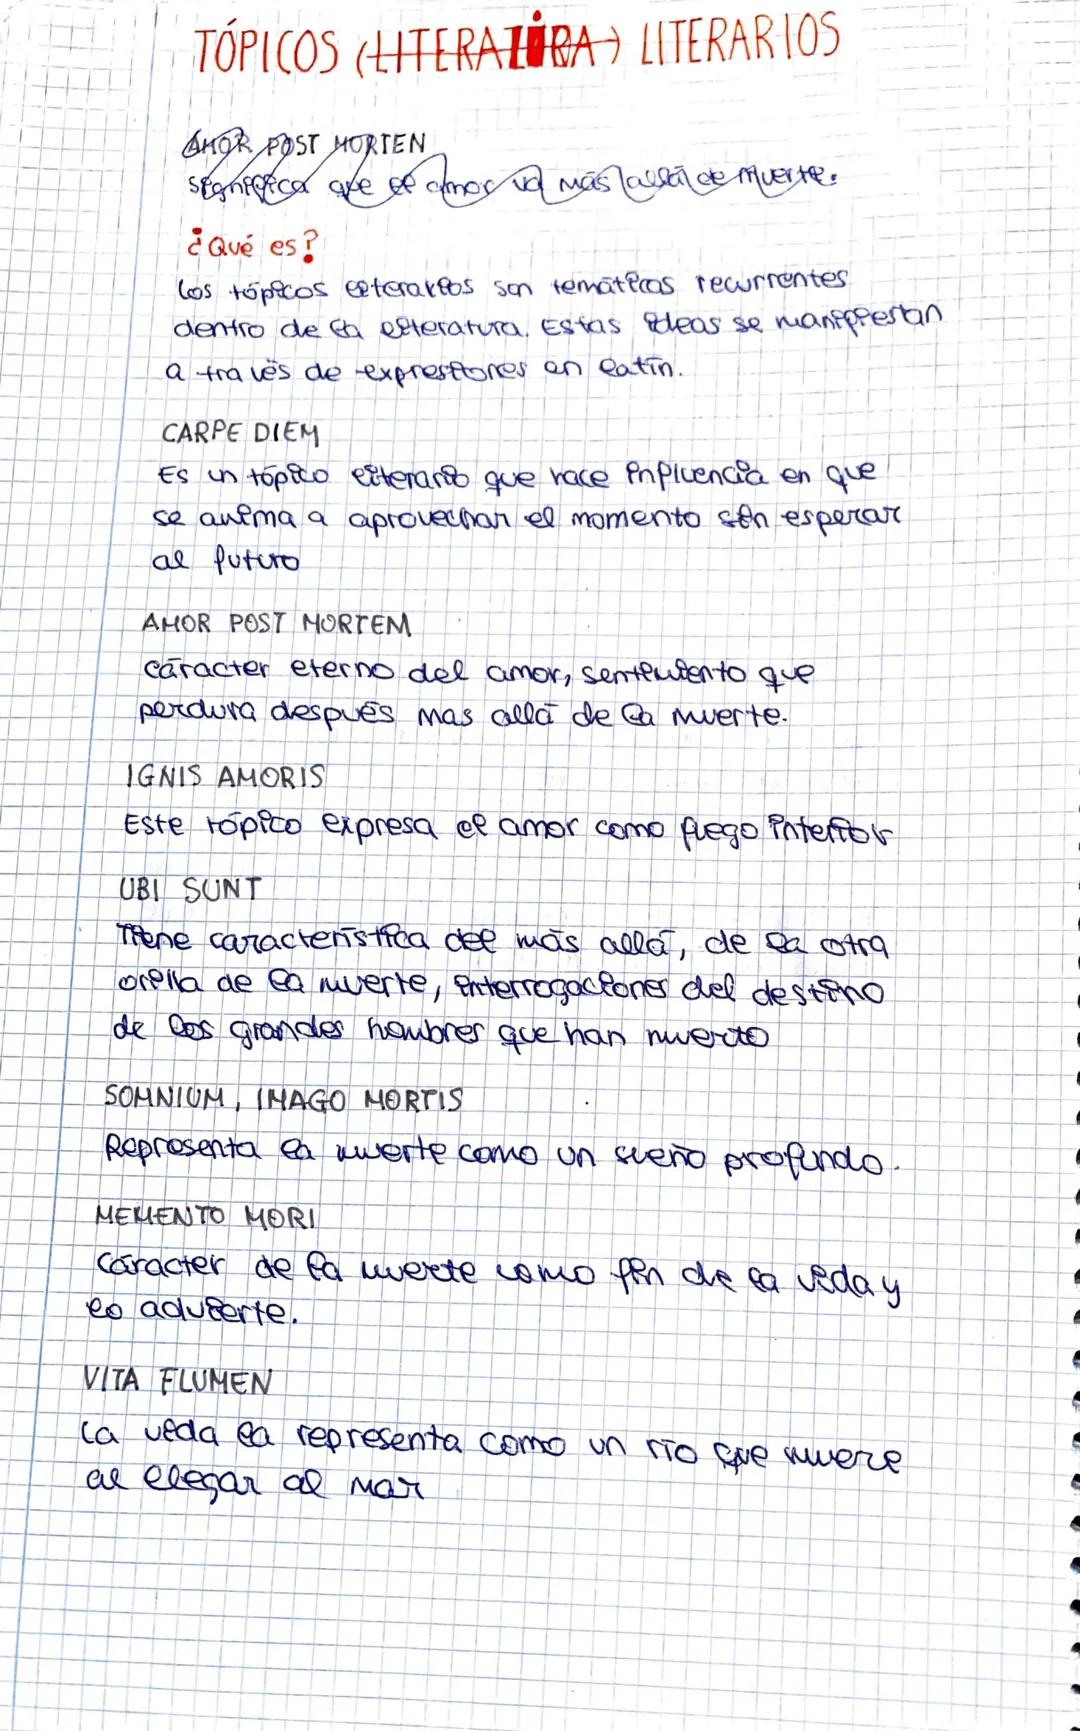 TÓPICOS (LITERATURA) LITERARIOS
AMOR POST MORTEN
significa que el amor va más allá de muerte.
¿Qué es?
Los tópicos literarios son temáticas recurrentes
dentro de la literatura. Estas ideas se manifiestan
a través de expresiones en latín.
CARPE DIEM
Es un tópico literario que hace influencia en que
se anima a aprovechar el momento sin esperar
al futuro
AMOR POST MORTEM
carácter eterno del amor, sentimiento que
perdura después mas allá de la muerte.
IGNIS AMORIS
Este tópico expresa el amor como fuego interior
UBI SUNT
Tiene característica del más allá, de la otra
orilla de la muerte, interrogaciones del destino
de los grandes hombres que han muerto
SOMNIUM, IMAGO MORTIS
Representa la muerte como un sueño profundo.
MEMENTO MORI
Carácter de la muerte como fin de la vida y
lo advierte.
VITA FLUMEN
La vida la representa como un río que muere
al llegar al mar